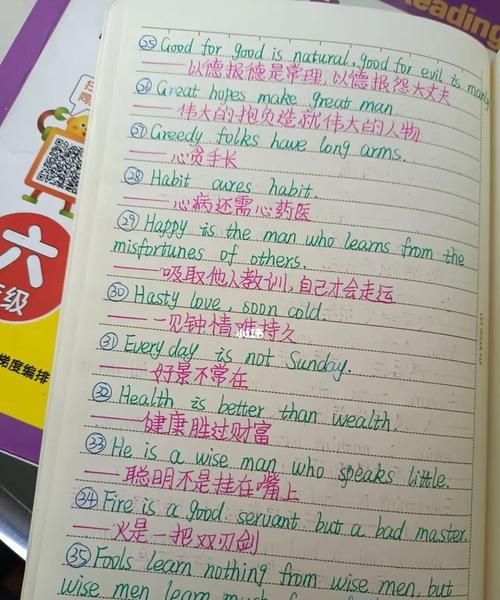 eading
㉕ Good for good is natural, good for evil is manly
——以德报德是常理,以德报怨大丈夫
㉖ Great hopes make great man
——伟大的抱负造就伟大的人物
㉗ Greedy folks have long arms.
——心贪手长
㉘ Habit cures habit.
——心病还需心药医
㉙ Happy is the man who learns from the
misfortunes of others.
——吸取他人教训,自己才会走运
㉚ Hasty love, soon cold.
——一见钟情难持久
㉛ Every day is not Sunday.
——好景不常在
㉜ Health is better than wealth.
——健康胜过财富
㉝ He is a wise man who speaks little.
——聪明不是挂在嘴上
㉞ Fire is a good servant but a bad master.
——火是一把双刃剑
㉟ Fools learn nothing from wise men, but
wise men learn much
六
级
梯度编排
小红书